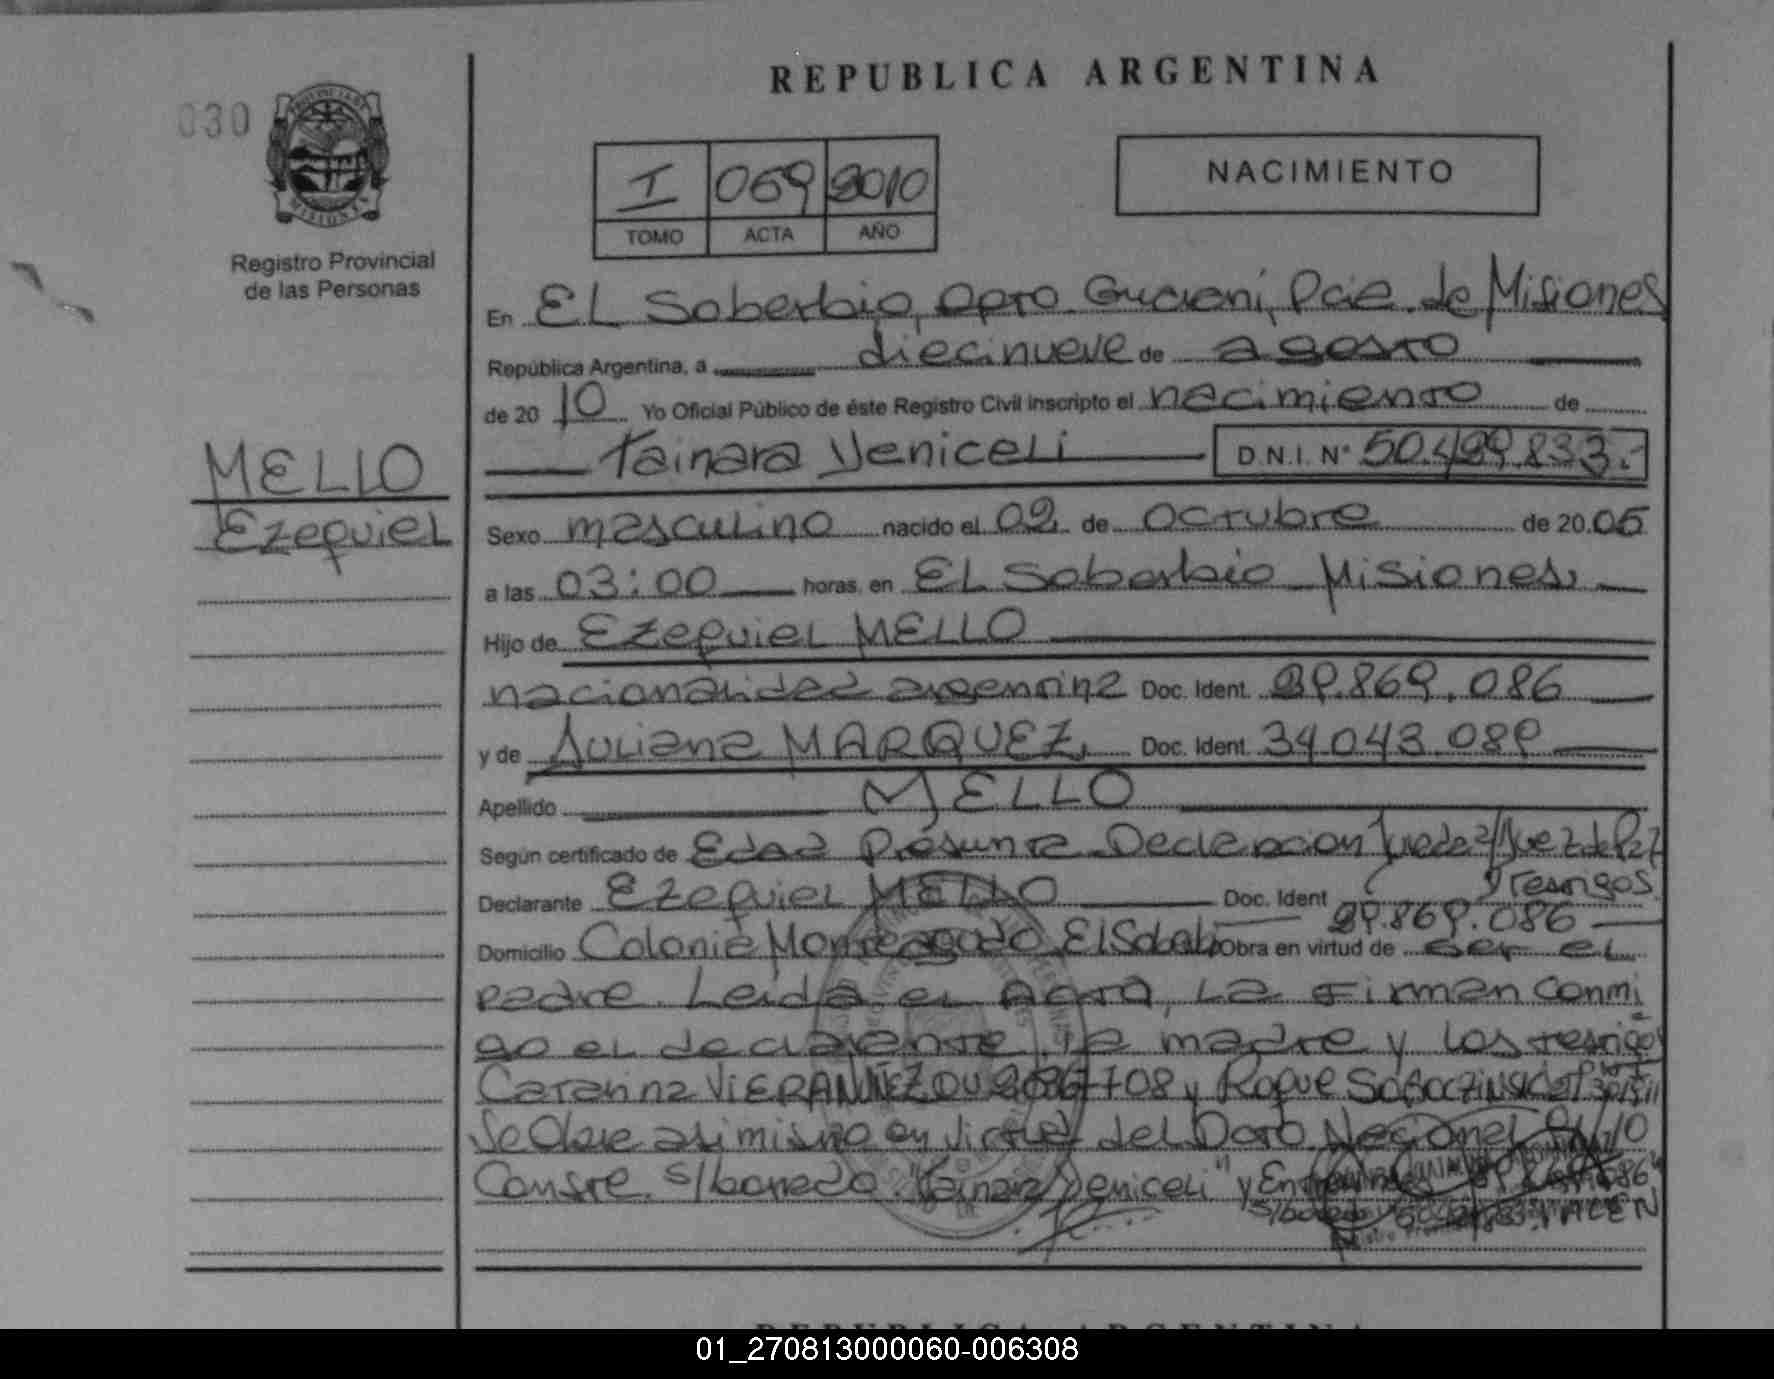 REPUBLICA ARGENTINA
030
I 069 2010
TOMO ACTA AÑO
NACIMIENTO
Registro Provincial
de las Personas
En EL Soberbio, Dpto. Guaraní, Pcia. de Misiones
República Argentina, a diecinueve de agosto
de 2010 Yo Oficial Público de éste Registro Civil inscripto el nacimiento de
Tainara Yeniceli D.N.I. Nº 50.499.833.-
MELLO
Ezequiel
Sexo masculino nacido el 02 de Octubre de 2005
a las 03:00 horas, en EL Soberbio Misiones
Hijo de Ezequiel MELLO
nacionalidad argentina Doc. Ident. 29.869.086
y de Juliana MARQUEZ Doc. Ident. 34043.089
Apellido MELLO
Según certificado de Edad Presunta Declaracion Jurada a/Juez de Paz
y Testigos
Declarante Ezequiel MELLO Doc. Ident 29.869.086
Domicilio Colonia Monteagudo, El Soberbio Obra en virtud de ser el
padre. Leída el Acta, la firman conmi
go el declarante, la madre y los testigos
Catarina VIERA y Roque
Se Obra asimismo en virtud del Dcto Nacional
Conste. s/borrado "Tainara Yeniceli" y
REPUBLICA ARGENTINA
01_270813000060-006308